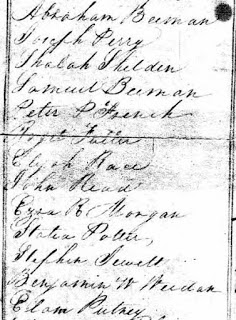 Abraham Beeman
Joseph Perry
Shelden
Samuel Beeman
Peter P French
Elijah Race
John Read
Ezra R Morgan
Potter
Stephen Jewell
Benjamin W Weeden
Elam Putney